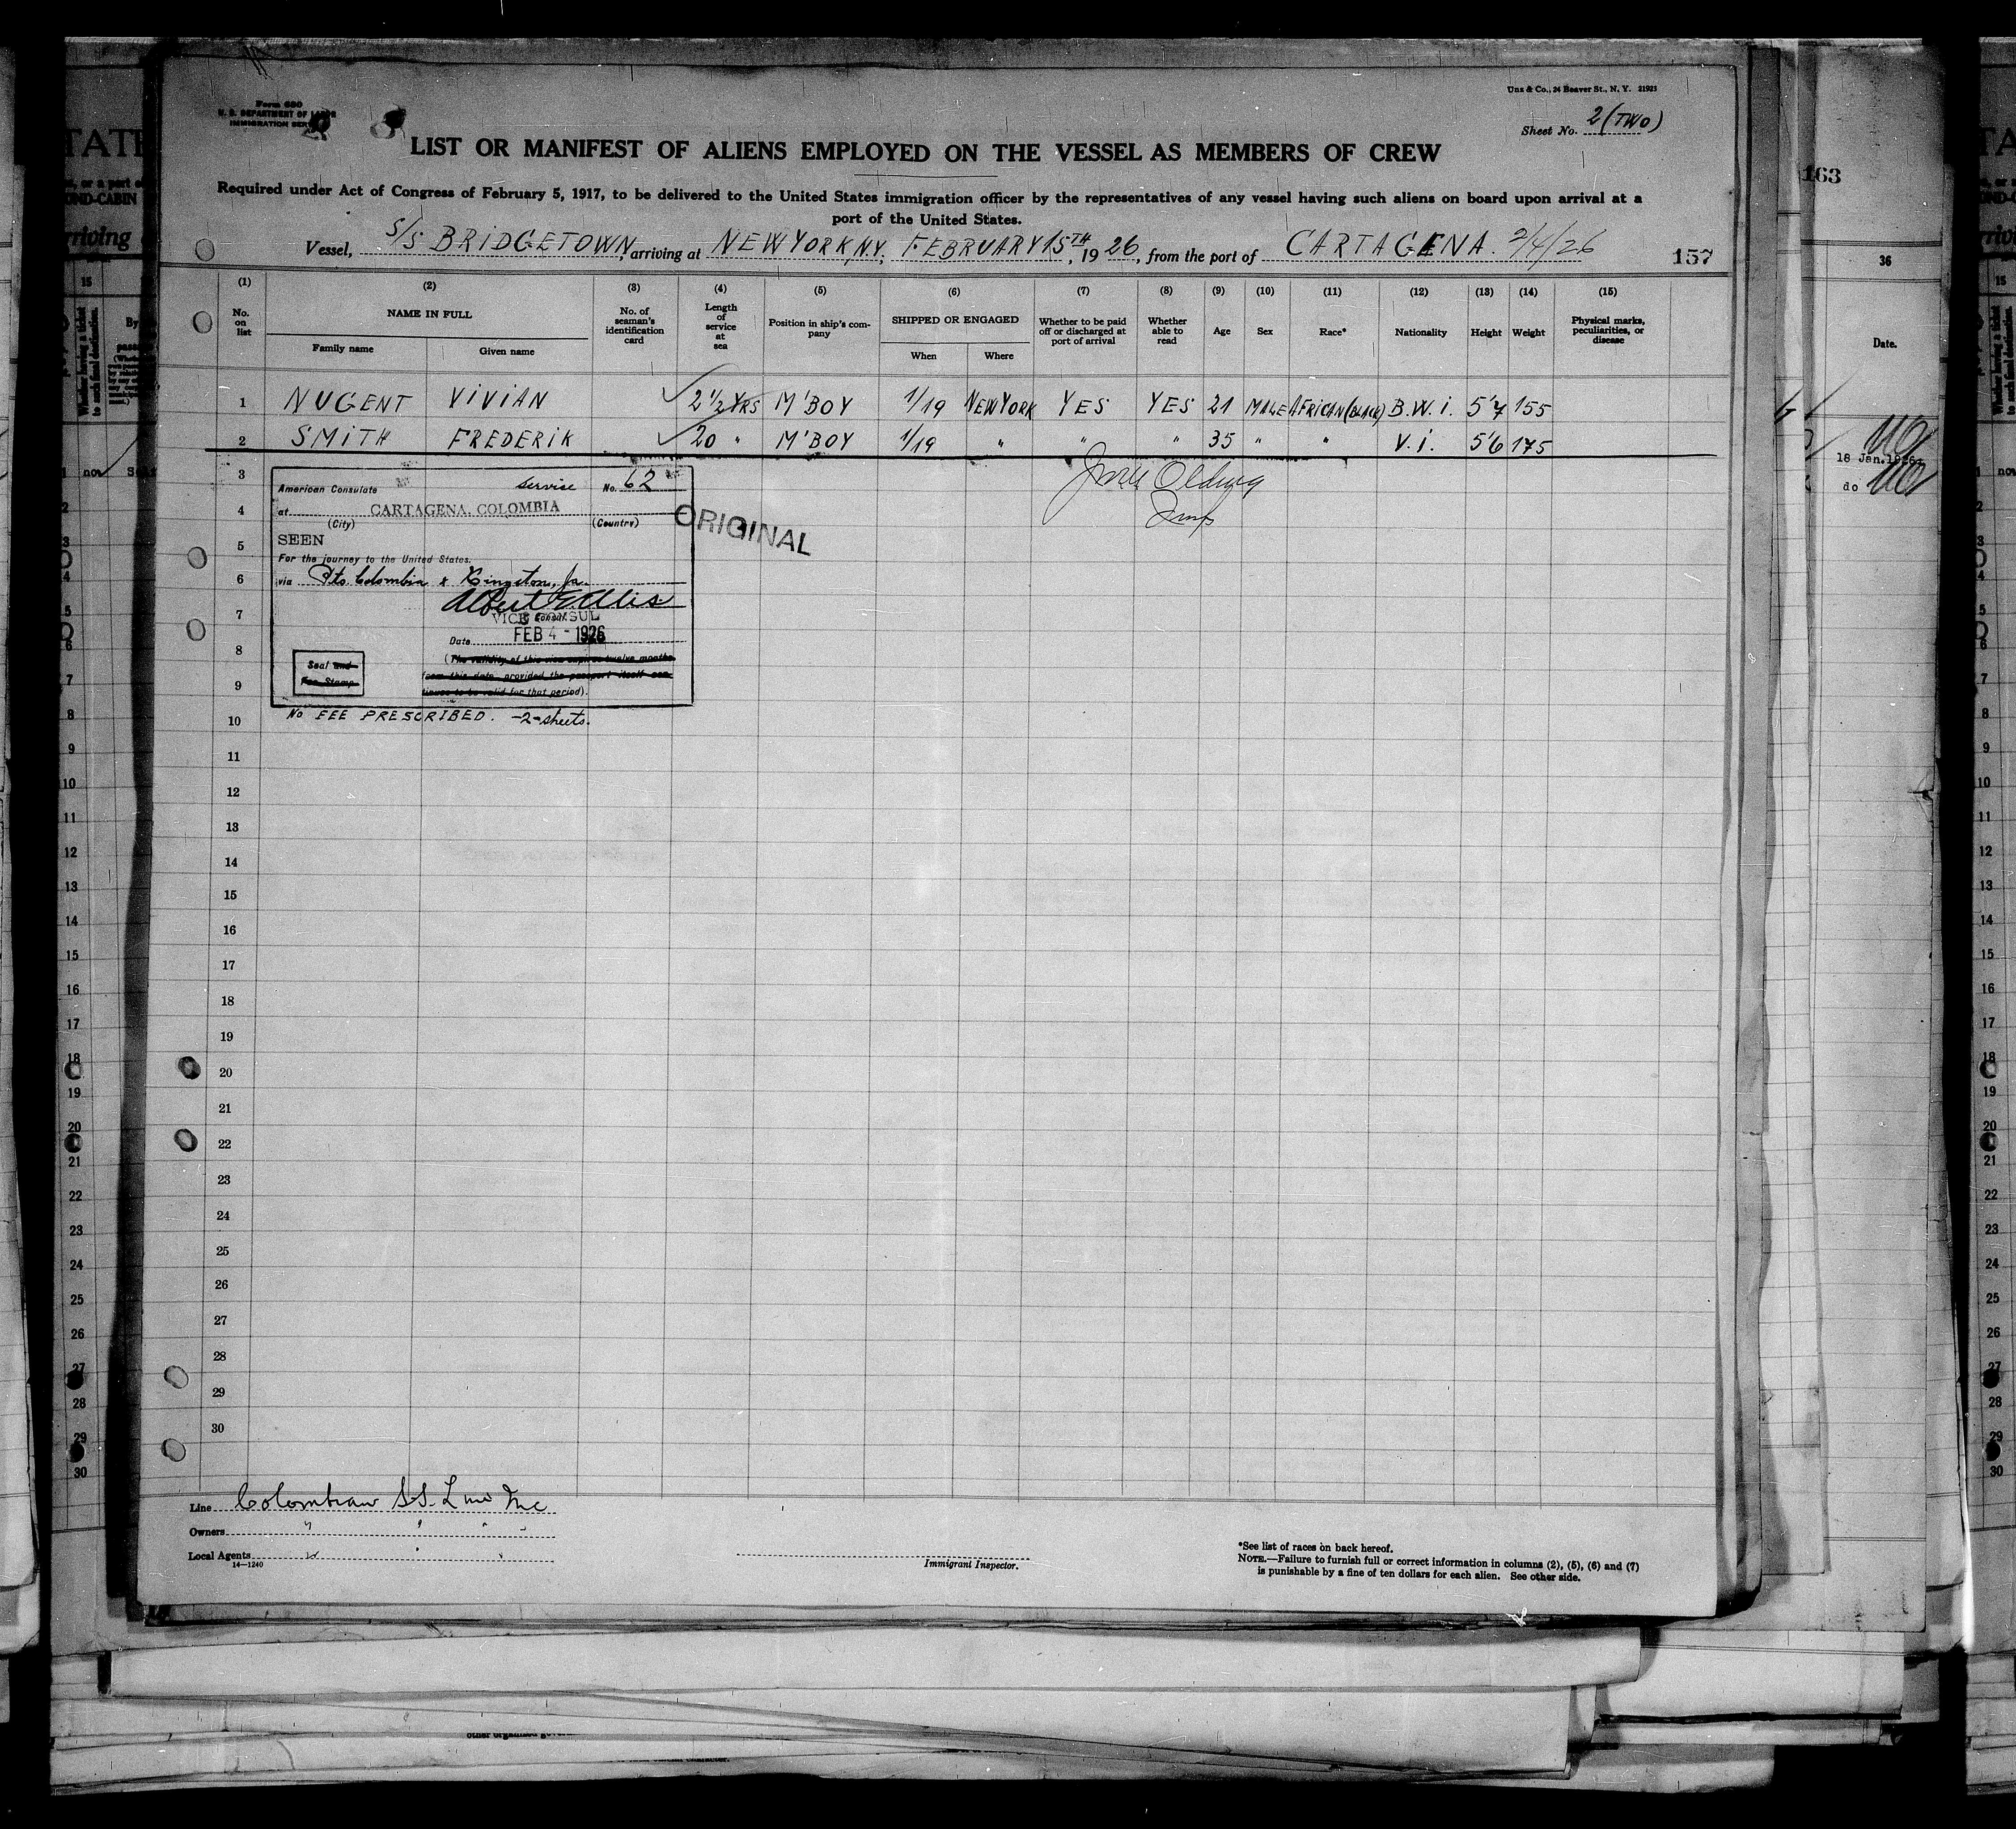 Form 680
U. S. DEPARTMENT OF LABOR
IMMIGRATION SERVICE
Unz & Co., 24 Beaver St., N. Y. 21923
Sheet No. 2 (TWO)
LIST OR MANIFEST OF ALIENS EMPLOYED ON THE VESSEL AS MEMBERS OF CREW
Required under Act of Congress of February 5, 1917, to be delivered to the United States immigration officer by the representatives of any vessel having such aliens on board upon arrival at a
port of the United States.
Vessel, S/S BRIDGETOWN, arriving at NEW YORK, N.Y. FEBRUARY 15TH, 1926, from the port of CARTAGENA. 2/4/26
157
(1) (2) (3) (4) (5) (6) (7) (8) (9) (10) (11) (12) (13) (14) (15)
No. on list NAME IN FULL Family name Given name No. of seaman's identification card Length of service at sea Position in ship's company SHIPPED OR ENGAGED When Where Whether to be paid off or discharged at port of arrival Whether able to read Age Sex Race* Nationality Height Weight Physical marks, peculiarities, or disease
1 NUGENT VIVIAN 2 1/2 YRS M'BOY 1/19 NEW YORK YES YES 21 MALE AFRICAN (BLACK) B.W.I. 5'7 155
2 SMITH FREDERIK 20 " M'BOY 1/19 " " " 35 " " V.I. 5'6 175
3
American Consulate service No. 62
4
at CARTAGENA, COLOMBIA
(City) (Country)
ORIGINAL
5
SEEN
For the journey to the United States.
6
via Pto Colombia & Kingston, Ja.
7
Albert E. Ellis
VICE CONSUL
Date FEB 4 - 1926
8
(The validity of this visa expires twelve months
from this date, provided the passport itself con-
tinues to be valid for that period).
Seal and
Fee Stamp
9
10
No FEE PRESCRIBED. -2- sheets.
11
12
13
14
15
16
17
18
19
20
21
22
23
24
25
26
27
28
29
30
Line Colombian S.S. Line Inc
Owners " " " "
Local Agents " " "
14—1240
Immigrant Inspector.
*See list of races on back hereof.
NOTE.—Failure to furnish full or correct information in columns (2), (5), (6) and (7)
is punishable by a fine of ten dollars for each alien. See other side.
163
36
Date.
18 Jan. 1926
do